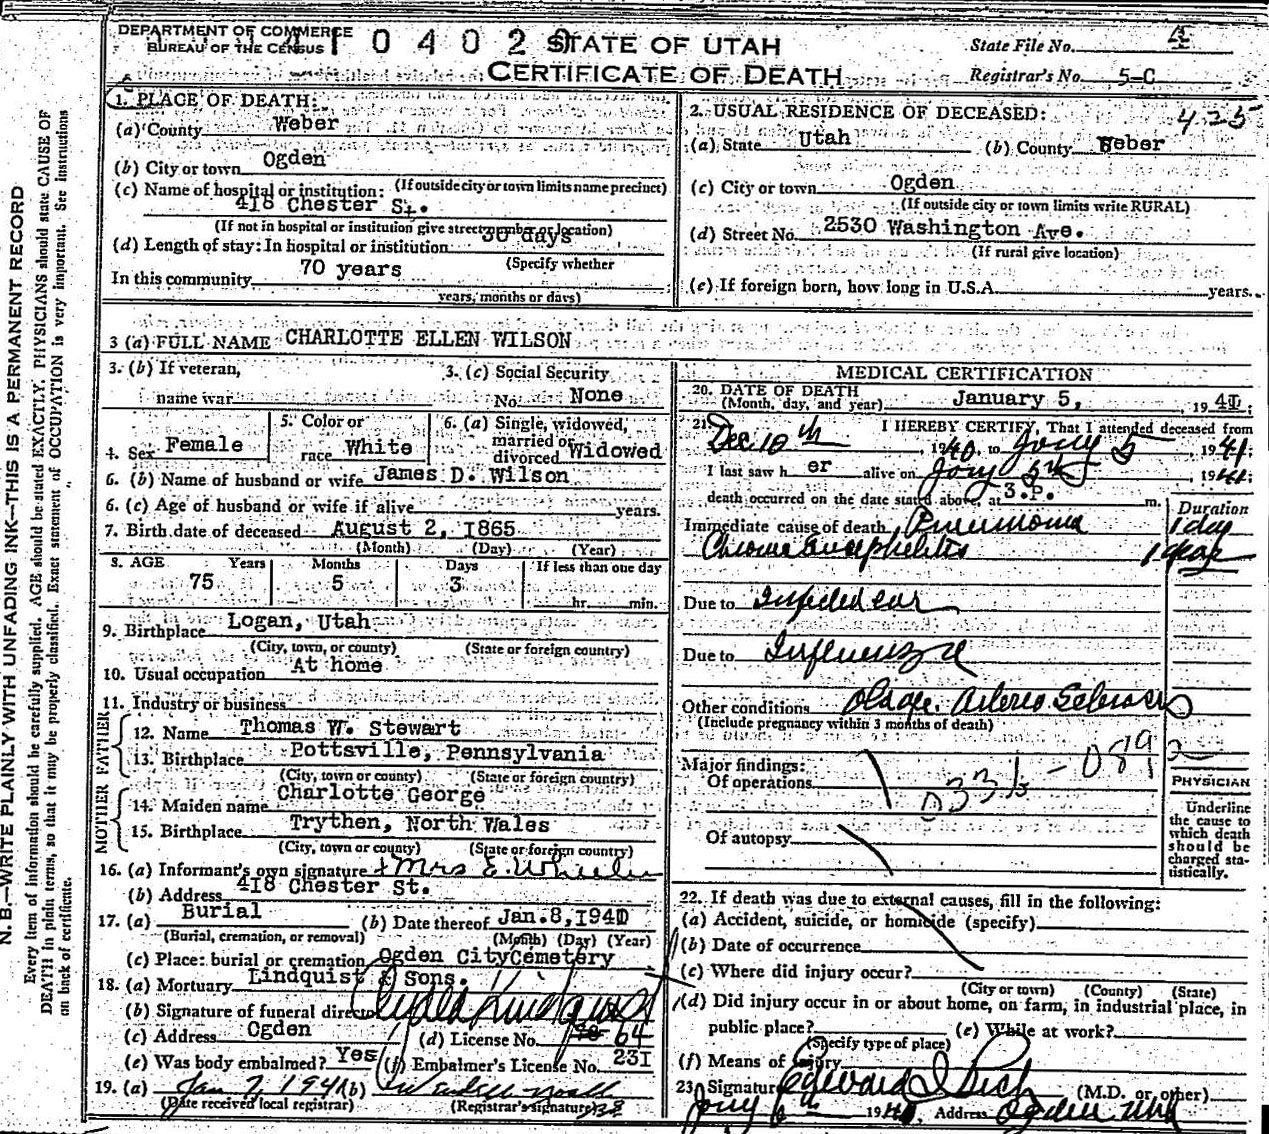 N. B.—WRITE PLAINLY WITH UNFADING INK—THIS IS A PERMANENT RECORD
Every item of information should be carefully supplied. AGE should be stated EXACTLY. PHYSICIANS should state CAUSE OF
DEATH in plain terms, so that it may be properly classified. Exact statement of OCCUPATION is very important. See instructions
on back of certificate.
DEPARTMENT OF COMMERCE
BUREAU OF THE CENSUS
STATE OF UTAH
CERTIFICATE OF DEATH
State File No. 4
Registrar's No. 5-C
1. PLACE OF DEATH:
(a) County Weber
(b) City or town Ogden
(c) Name of hospital or institution: (If outside city or town limits name precinct)
418 Chester St.
(If not in hospital or institution give street number or location)
(d) Length of stay: In hospital or institution 30 days
(Specify whether
In this community 70 years
years, months or days)
2. USUAL RESIDENCE OF DECEASED: 425
(a) State Utah (b) County Weber
(c) City or town Ogden
(If outside city or town limits write RURAL)
(d) Street No. 2530 Washington Ave.
(If rural give location)
(e) If foreign born, how long in U.S.A. years.
3 (a) FULL NAME CHARLOTTE ELLEN WILSON
3. (b) If veteran,
name war
3. (c) Social Security
No. None
4. Sex Female
5. Color or
race White
6. (a) Single, widowed,
married or
divorced Widowed
6. (b) Name of husband or wife James D. Wilson
6. (c) Age of husband or wife if alive years.
7. Birth date of deceased August 2, 1865
(Month) (Day) (Year)
8. AGE Years Months Days If less than one day
75 5 3
hr. min.
9. Birthplace Logan, Utah
(City, town, or county) (State or foreign country)
10. Usual occupation At home
11. Industry or business
FATHER
12. Name Thomas W. Stewart
13. Birthplace Pottsville, Pennsylvania
(City, town or county) (State or foreign country)
MOTHER
14. Maiden name Charlotte George
15. Birthplace Trythen, North Wales
(City, town or county) (State or foreign country)
16. (a) Informant's own signature Mrs E. Wheeler
(b) Address 418 Chester St.
17. (a) Burial (b) Date thereof Jan. 8, 1941
(Burial, cremation, or removal) (Month) (Day) (Year)
(c) Place: burial or cremation Ogden City Cemetery
18. (a) Mortuary Lindquist & Sons.
(b) Signature of funeral director
(c) Address Ogden (d) License No. 64
(e) Was body embalmed? Yes (f) Embalmer's License No. 231
19. (a) Jan 7, 1941 (b)
(Date received local registrar) (Registrar's signature)
MEDICAL CERTIFICATION
20. DATE OF DEATH
(Month, day, and year) January 5, 1941;
21. I HEREBY CERTIFY, That I attended deceased from
Dec 10th, 1940, to Jany 5, 1941;
I last saw her alive on Jany 5th, 1941;
death occurred on the date stated above, at 3.P. m.
Duration
Immediate cause of death Pneumonia 1 day
Chronic Encephelitis 1 year
Due to Infected ear
Due to Influenza
Other conditions Old age. Arterio Sclerosis
(Include pregnancy within 3 months of death)
Major findings:
Of operations
Of autopsy
PHYSICIAN
Underline
the cause to
which death
should be
charged sta-
tistically.
22. If death was due to external causes, fill in the following:
(a) Accident, suicide, or homicide (specify)
(b) Date of occurrence
(c) Where did injury occur?
(City or town) (County) (State)
(d) Did injury occur in or about home, on farm, in industrial place, in
public place? (e) While at work?
(Specify type of place)
(f) Means of injury
23. Signature Edward I Rich (M.D. or other)
Jany 6th 1941 Address Ogden Utah